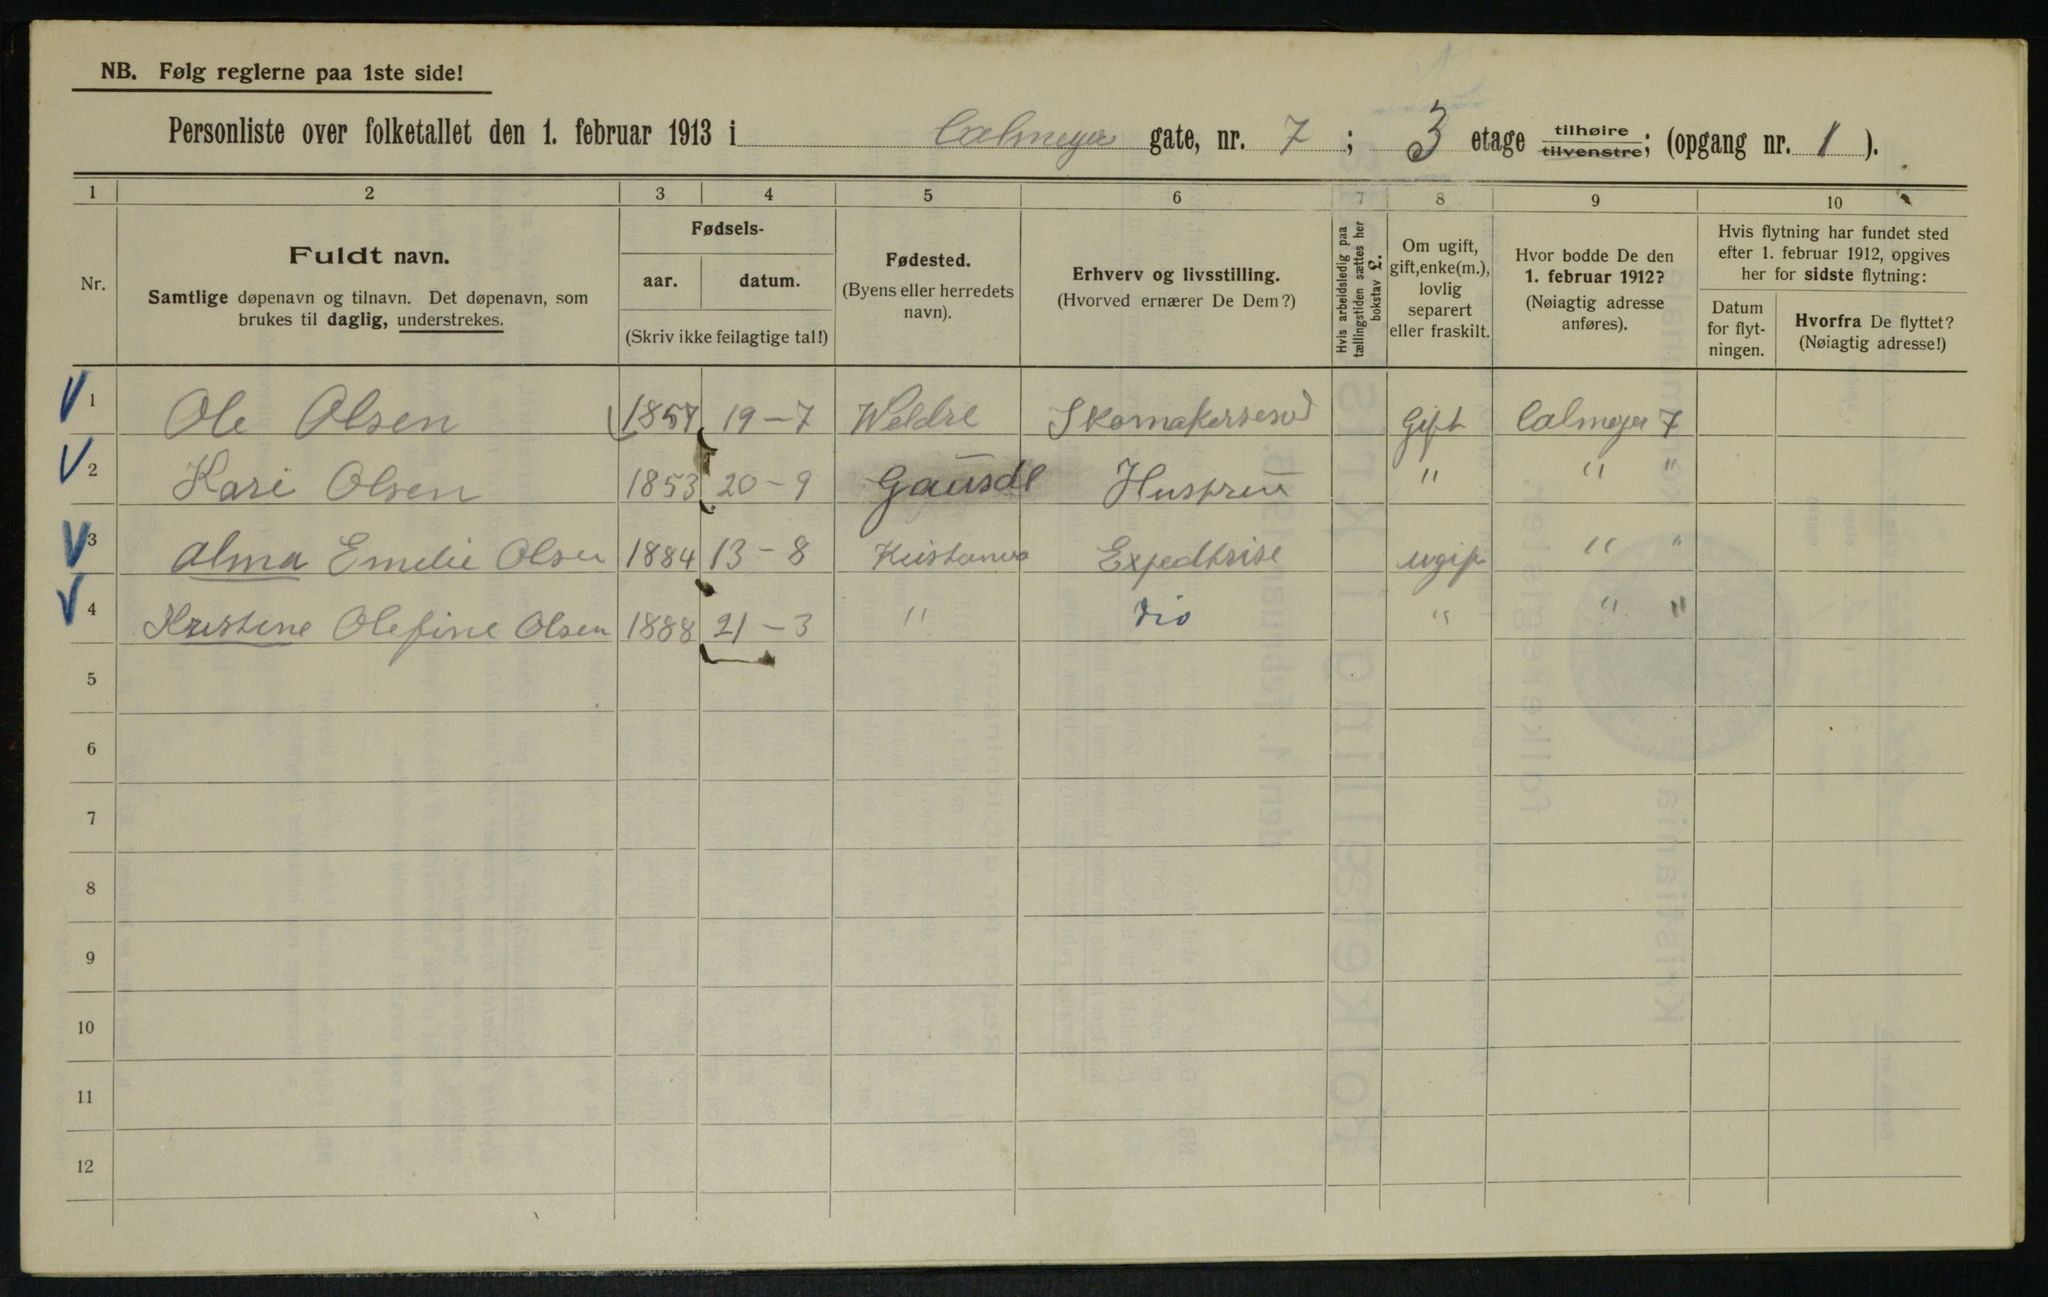 NB. Følg reglerne paa 1ste side!
Personliste over folketallet den 1. februar 1913 i Calmeyer gate, nr. 7 ; 3 etage tilhøire tilvenstre; (opgang nr. 1 ).
1 2 3 4 5 6 7 8 9 10
Nr.
Fuldt navn.
Samtlige døpenavn og tilnavn. Det døpenavn, som
brukes til daglig, understrekes.
Fødsels-
aar. datum.
(Skriv ikke feilagtige tal!)
Fødested.
(Byens eller herredets
navn).
Erhverv og livsstilling.
(Hvorved ernærer De Dem?)
Hvis arbeidsledig paa
tællingstiden sættes her
bokstav L.
Om ugift,
gift, enke(m.),
lovlig
separert
eller fraskilt.
Hvor bodde De den
1. februar 1912?
(Nøiagtig adresse
anføres).
Hvis flytning har fundet sted
efter 1. februar 1912, opgives
her for sidste flytning:
Datum
for flyt-
ningen.
Hvorfra De flyttet?
(Nøiagtig adresse!)
1 Ole Olsen 1857 19-7 Weldre Skomakersvend Gift Calmeyer 7
2 Kari Olsen 1853 20-9 Gausdl Husfrue " " "
3 Alma Emelie Olsen 1884 13-8 Kristania Expedtrise ugift " "
4 Kristine Olefine Olsen 1888 21-3 " dio " " "
5
6
7
8
9
10
11
12